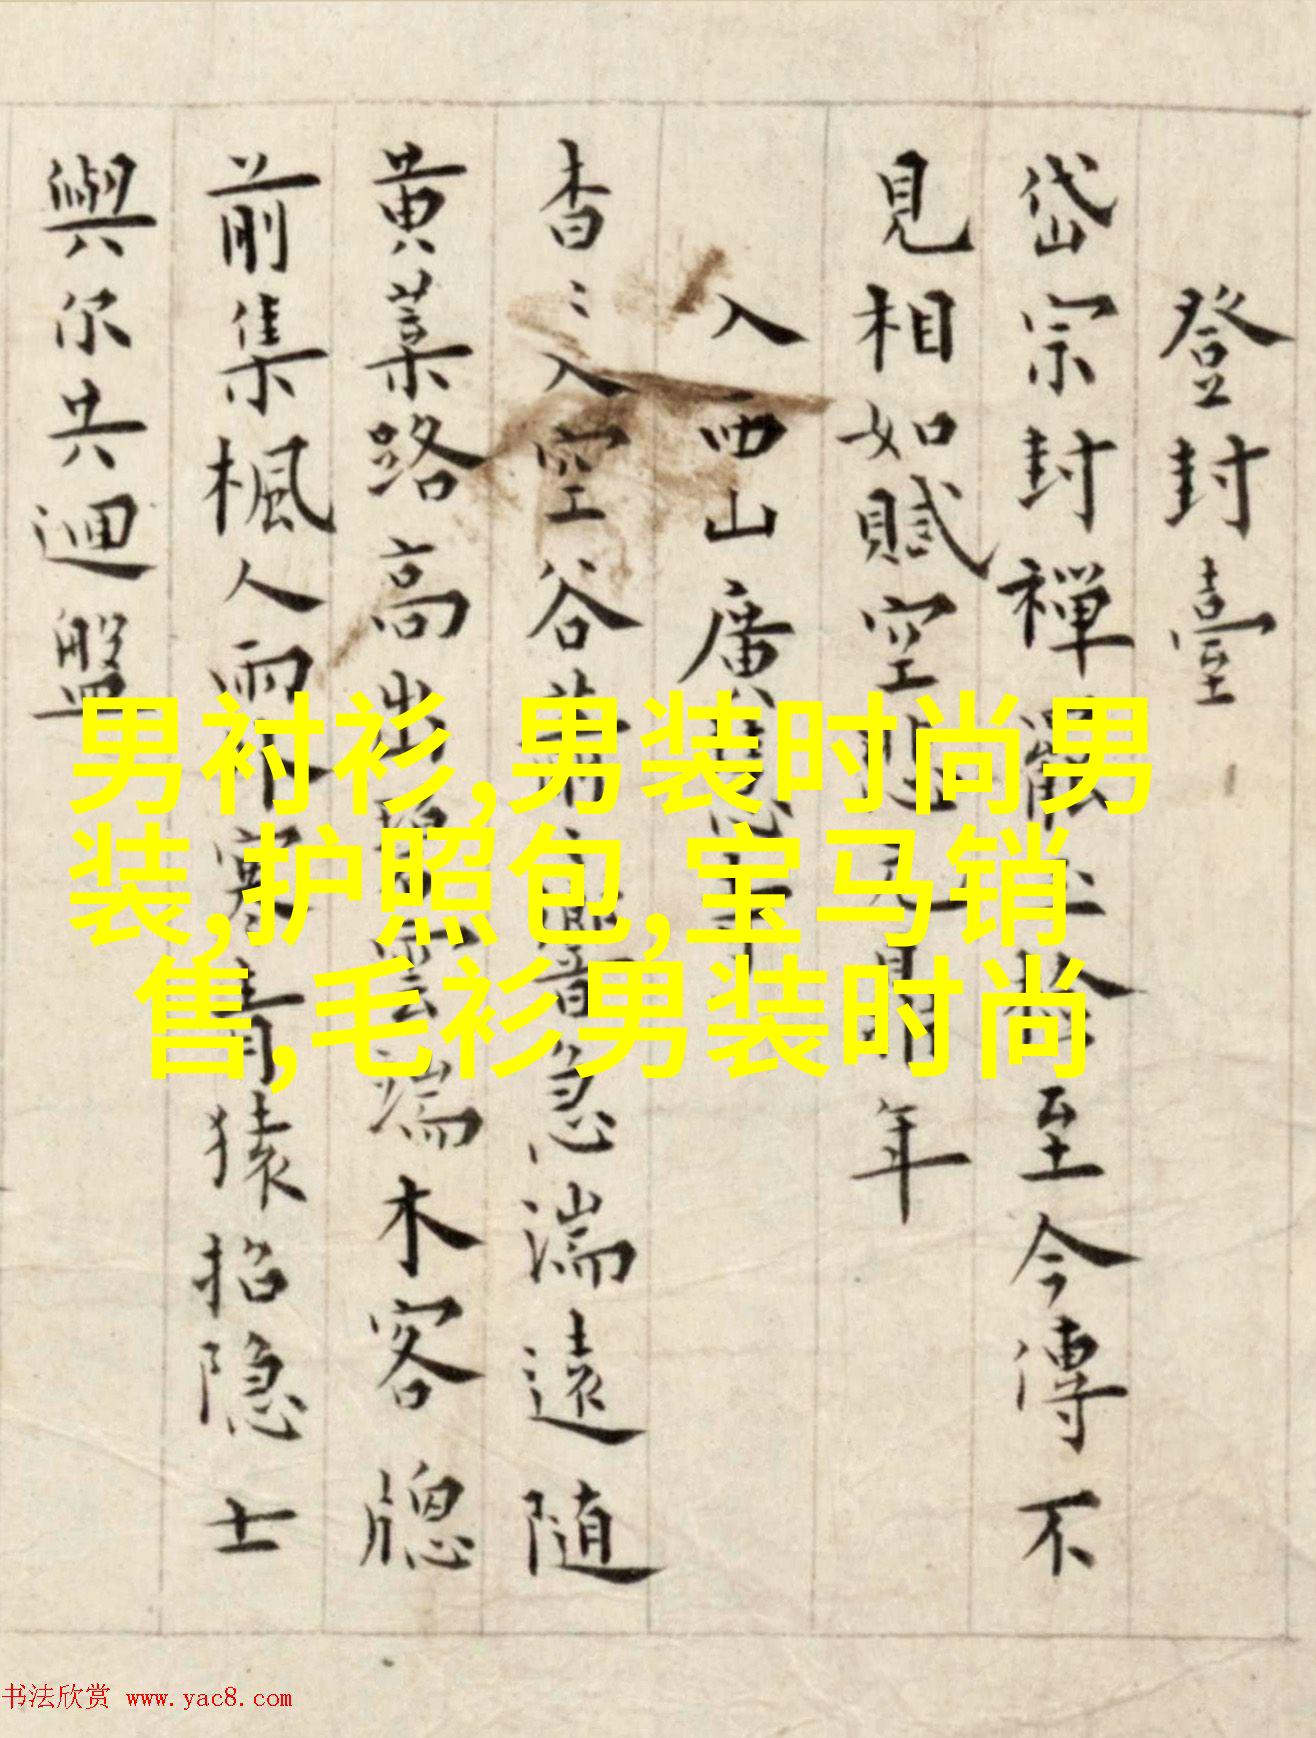 登封臺
岱宗封禪
至今傳不
見相如賦空
年
入西山廣
杳〻入空谷
急湍遠随
黄葉路高出
端木客牕
前集楓人雨
寒青猿招隐士
與尔共迴盤
男衬衫,男装时尚男
装,护照包,宝马销
售,毛衫男装时尚
书法欣赏 www.yac8.com